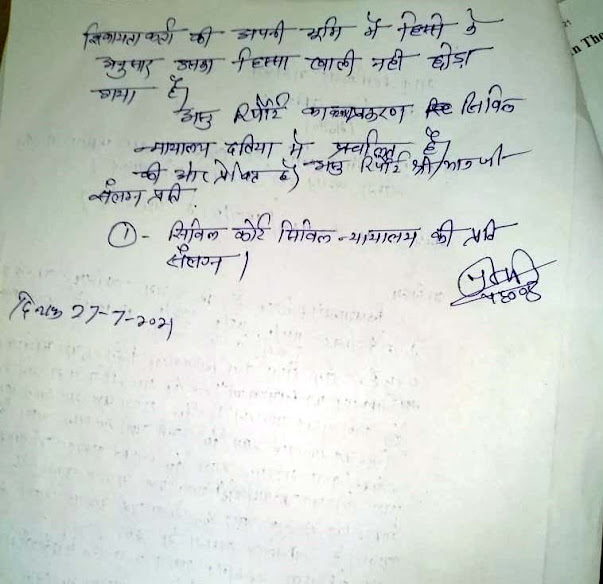 शिकायतकर्ता की अपनी भूमि में हिस्से के
अनुसार उसका हिस्सा खाली नहीं छोड़ा
गया है।
अतः रिपोर्ट का प्रकरण सिविल
न्यायालय दतिया में प्रचलित है।
की ओर प्रेषित है। अतः रिपोर्ट श्री
संलग्न प्रति
① - सिविल कोर्ट सिविल न्यायालय की प्रति
संलग्न।
दिनांक 27-7-2021
n The